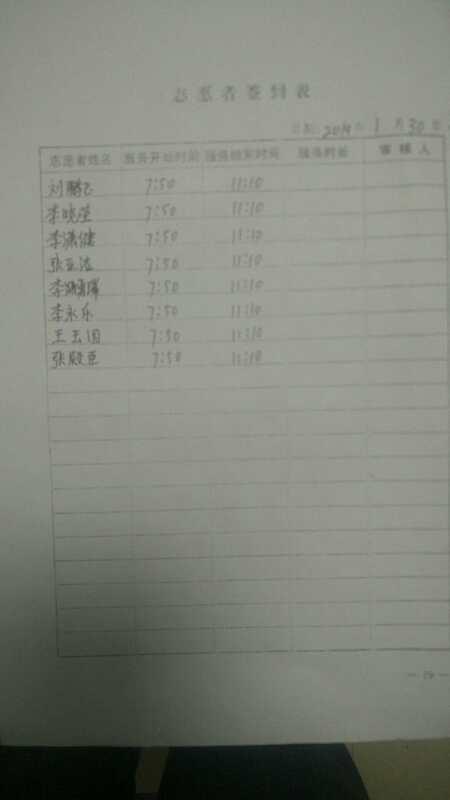 志愿者签到表
日期: 年 1 月 30 日
志愿者姓名 服务开始时间 服务结束时间 服务时长 审核人
刘鹏飞 7:50 11:10
李晓莹 7:50 11:10
李潇健 7:50 11:10
张亚浩 7:50 11:10
李 7:50 11:10
李永乐 7:50 11:10
王玉国 7:50 11:10
张殿臣 7:50 11:10